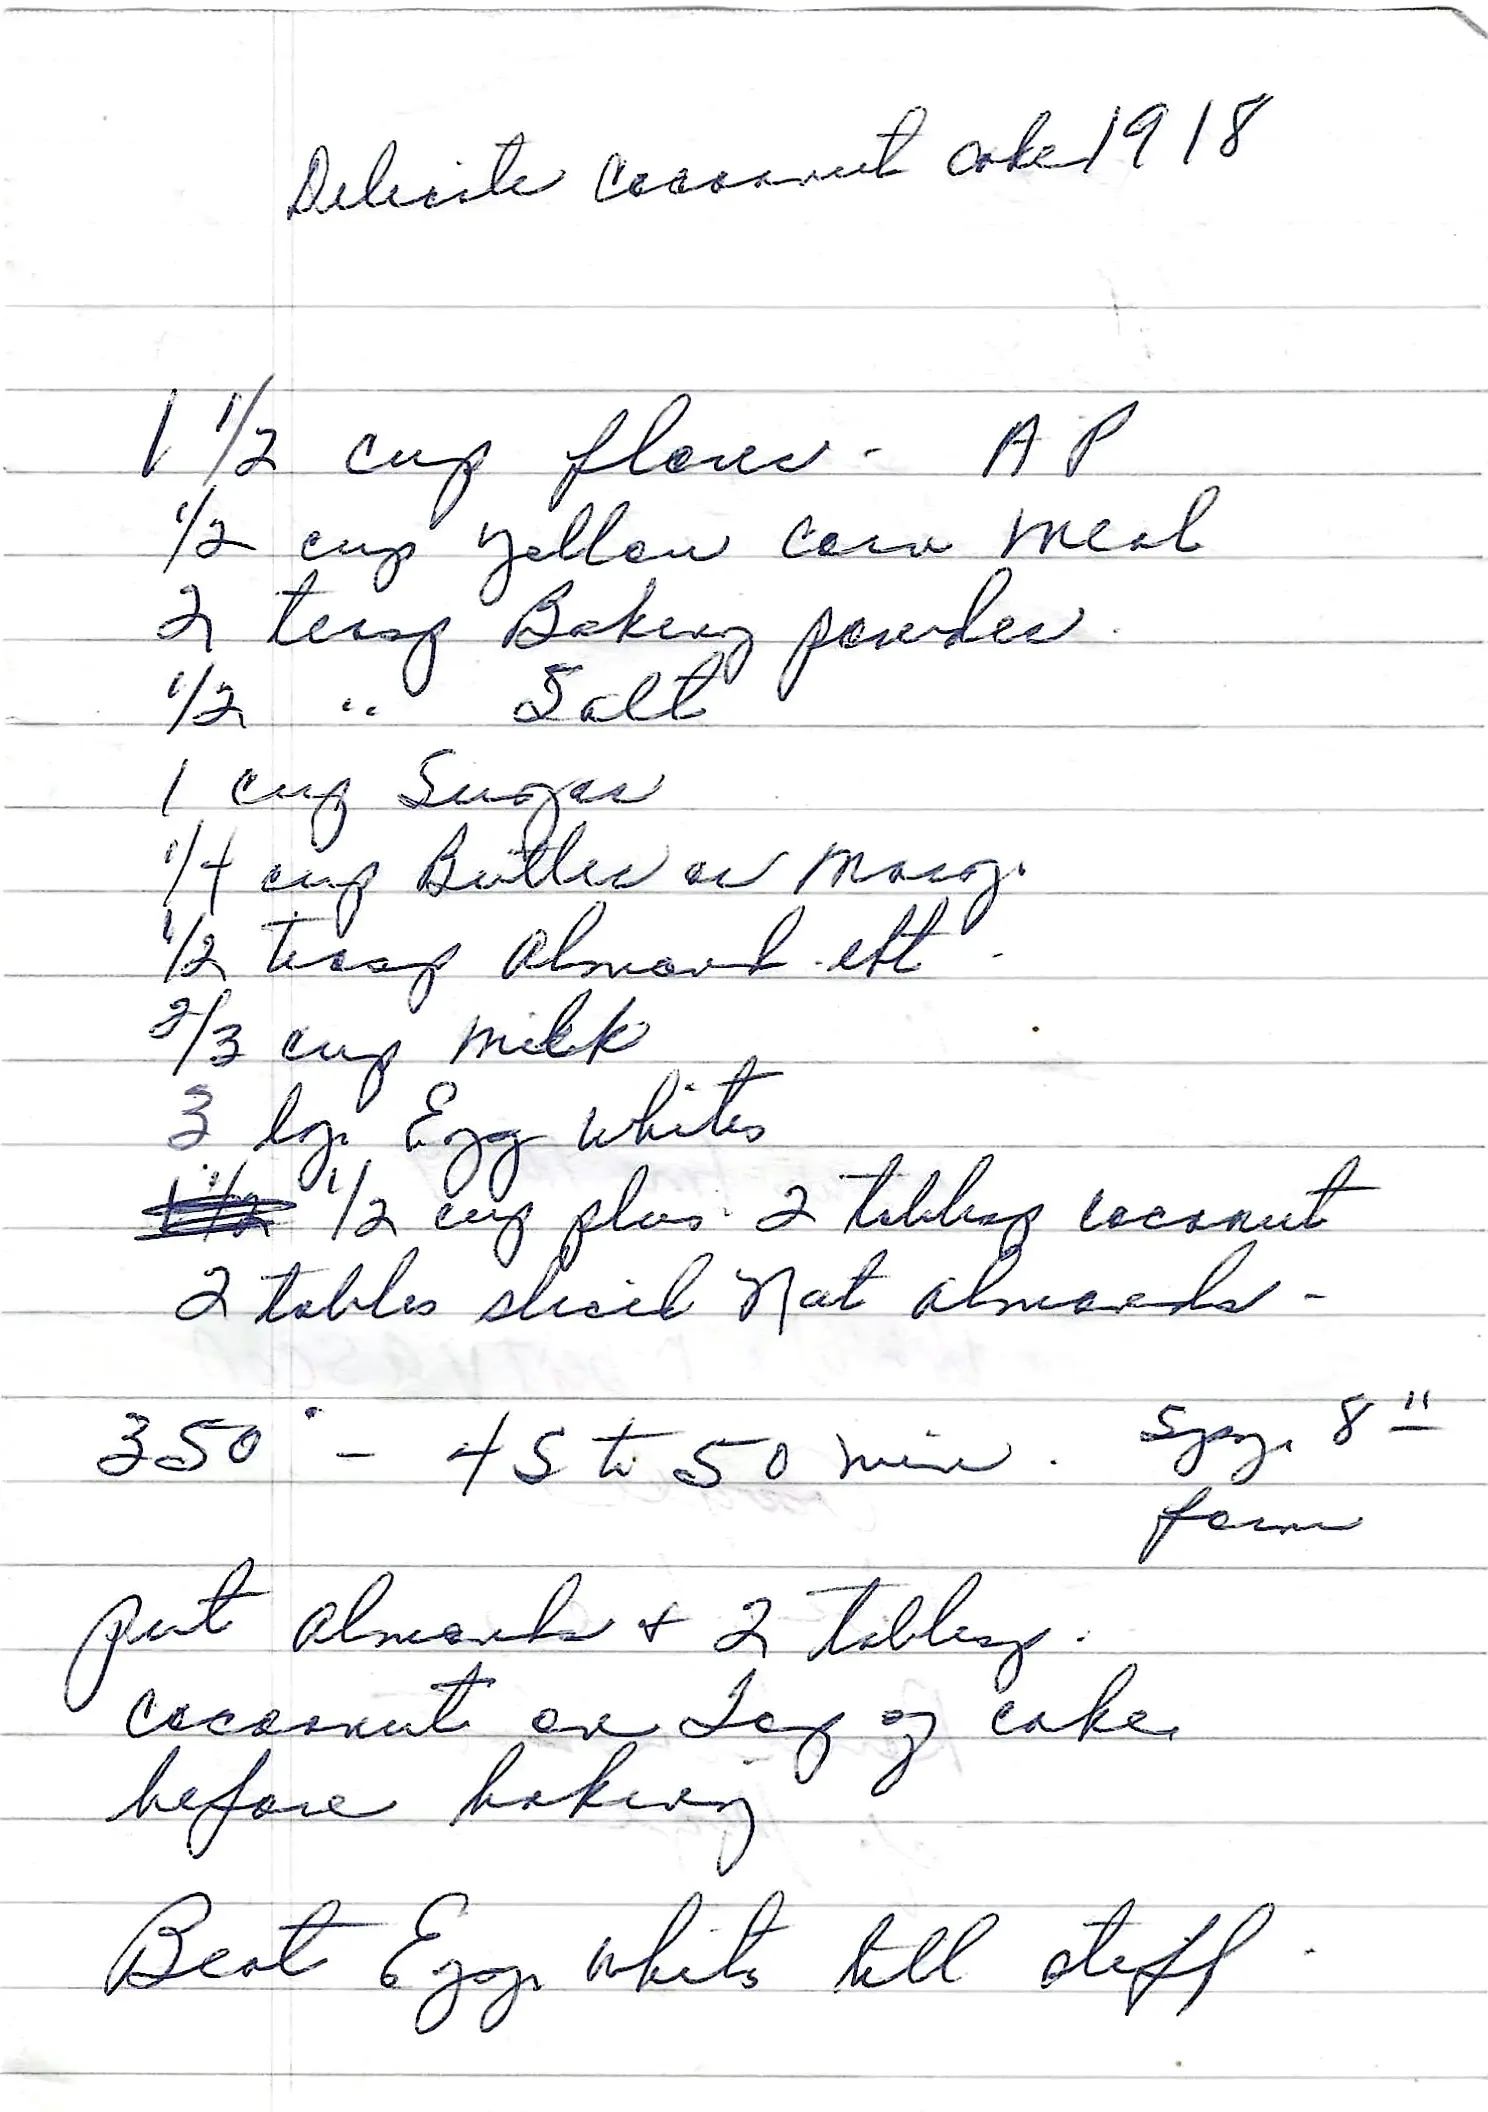 Delicate Cocoanut Cake 1918
1 1/2 cup flour - AP
1/2 cup yellow corn meal
2 teasp Baking powder.
1/2 " Salt
1 cup Sugar
1/4 cup Butter or Marg.
1/2 teasp almond ext.
2/3 cup milk
3 lg. Egg whites
1 1/2 1/2 cup plus 2 tablesp coconut
2 tables sliced Nat almonds -
350° - 45 to 50 min. 8"
form
put almonds + 2 tablesp.
cocoanut on Top of cake
before baking
Beat Egg whites till stiff.